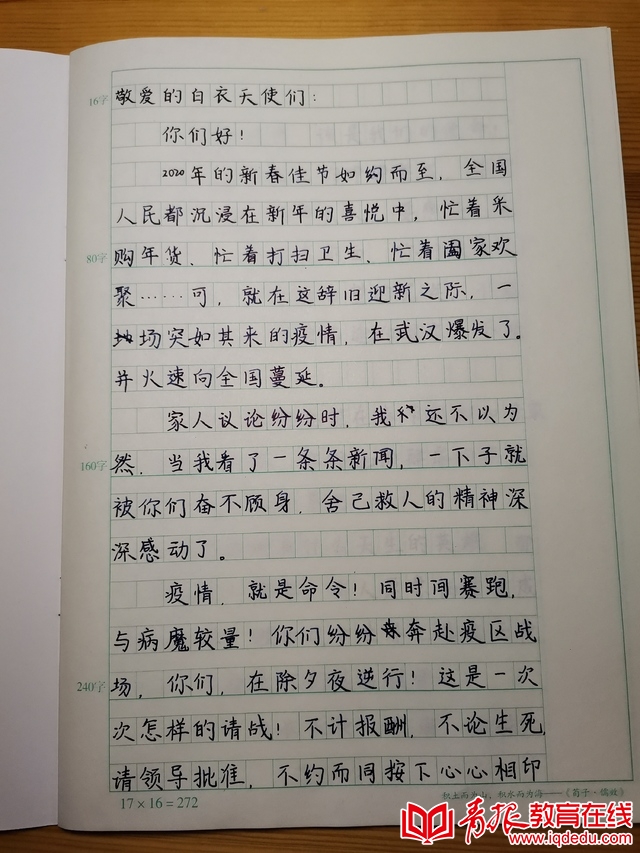 敬爱的白衣天使们:
你们好!
2020年的新春佳节如约而至,全国
人民都沉浸在新年的喜悦中,忙着采
购年货、忙着打扫卫生、忙着阖家欢
聚……可,就在这辞旧迎新之际,一
场突如其来的疫情,在武汉爆发了。
并火速向全国蔓延。
家人议论纷纷时,我还不以为
然,当我看了一条条新闻,一下子就
被你们奋不顾身,舍己救人的精神深
深感动了。
疫情,就是命令!同时间赛跑,
与病魔较量!你们纷纷奔赴疫区战
场,你们,在除夕夜逆行!这是一次
次怎样的请战!不计报酬,不论生死,
请领导批准,不约而同按下心心相印
16字
80字
160字
240字
17×16=272
积土而为山,积水而为海——《荀子·儒效》
青报教育在线
www.iqdedu.com